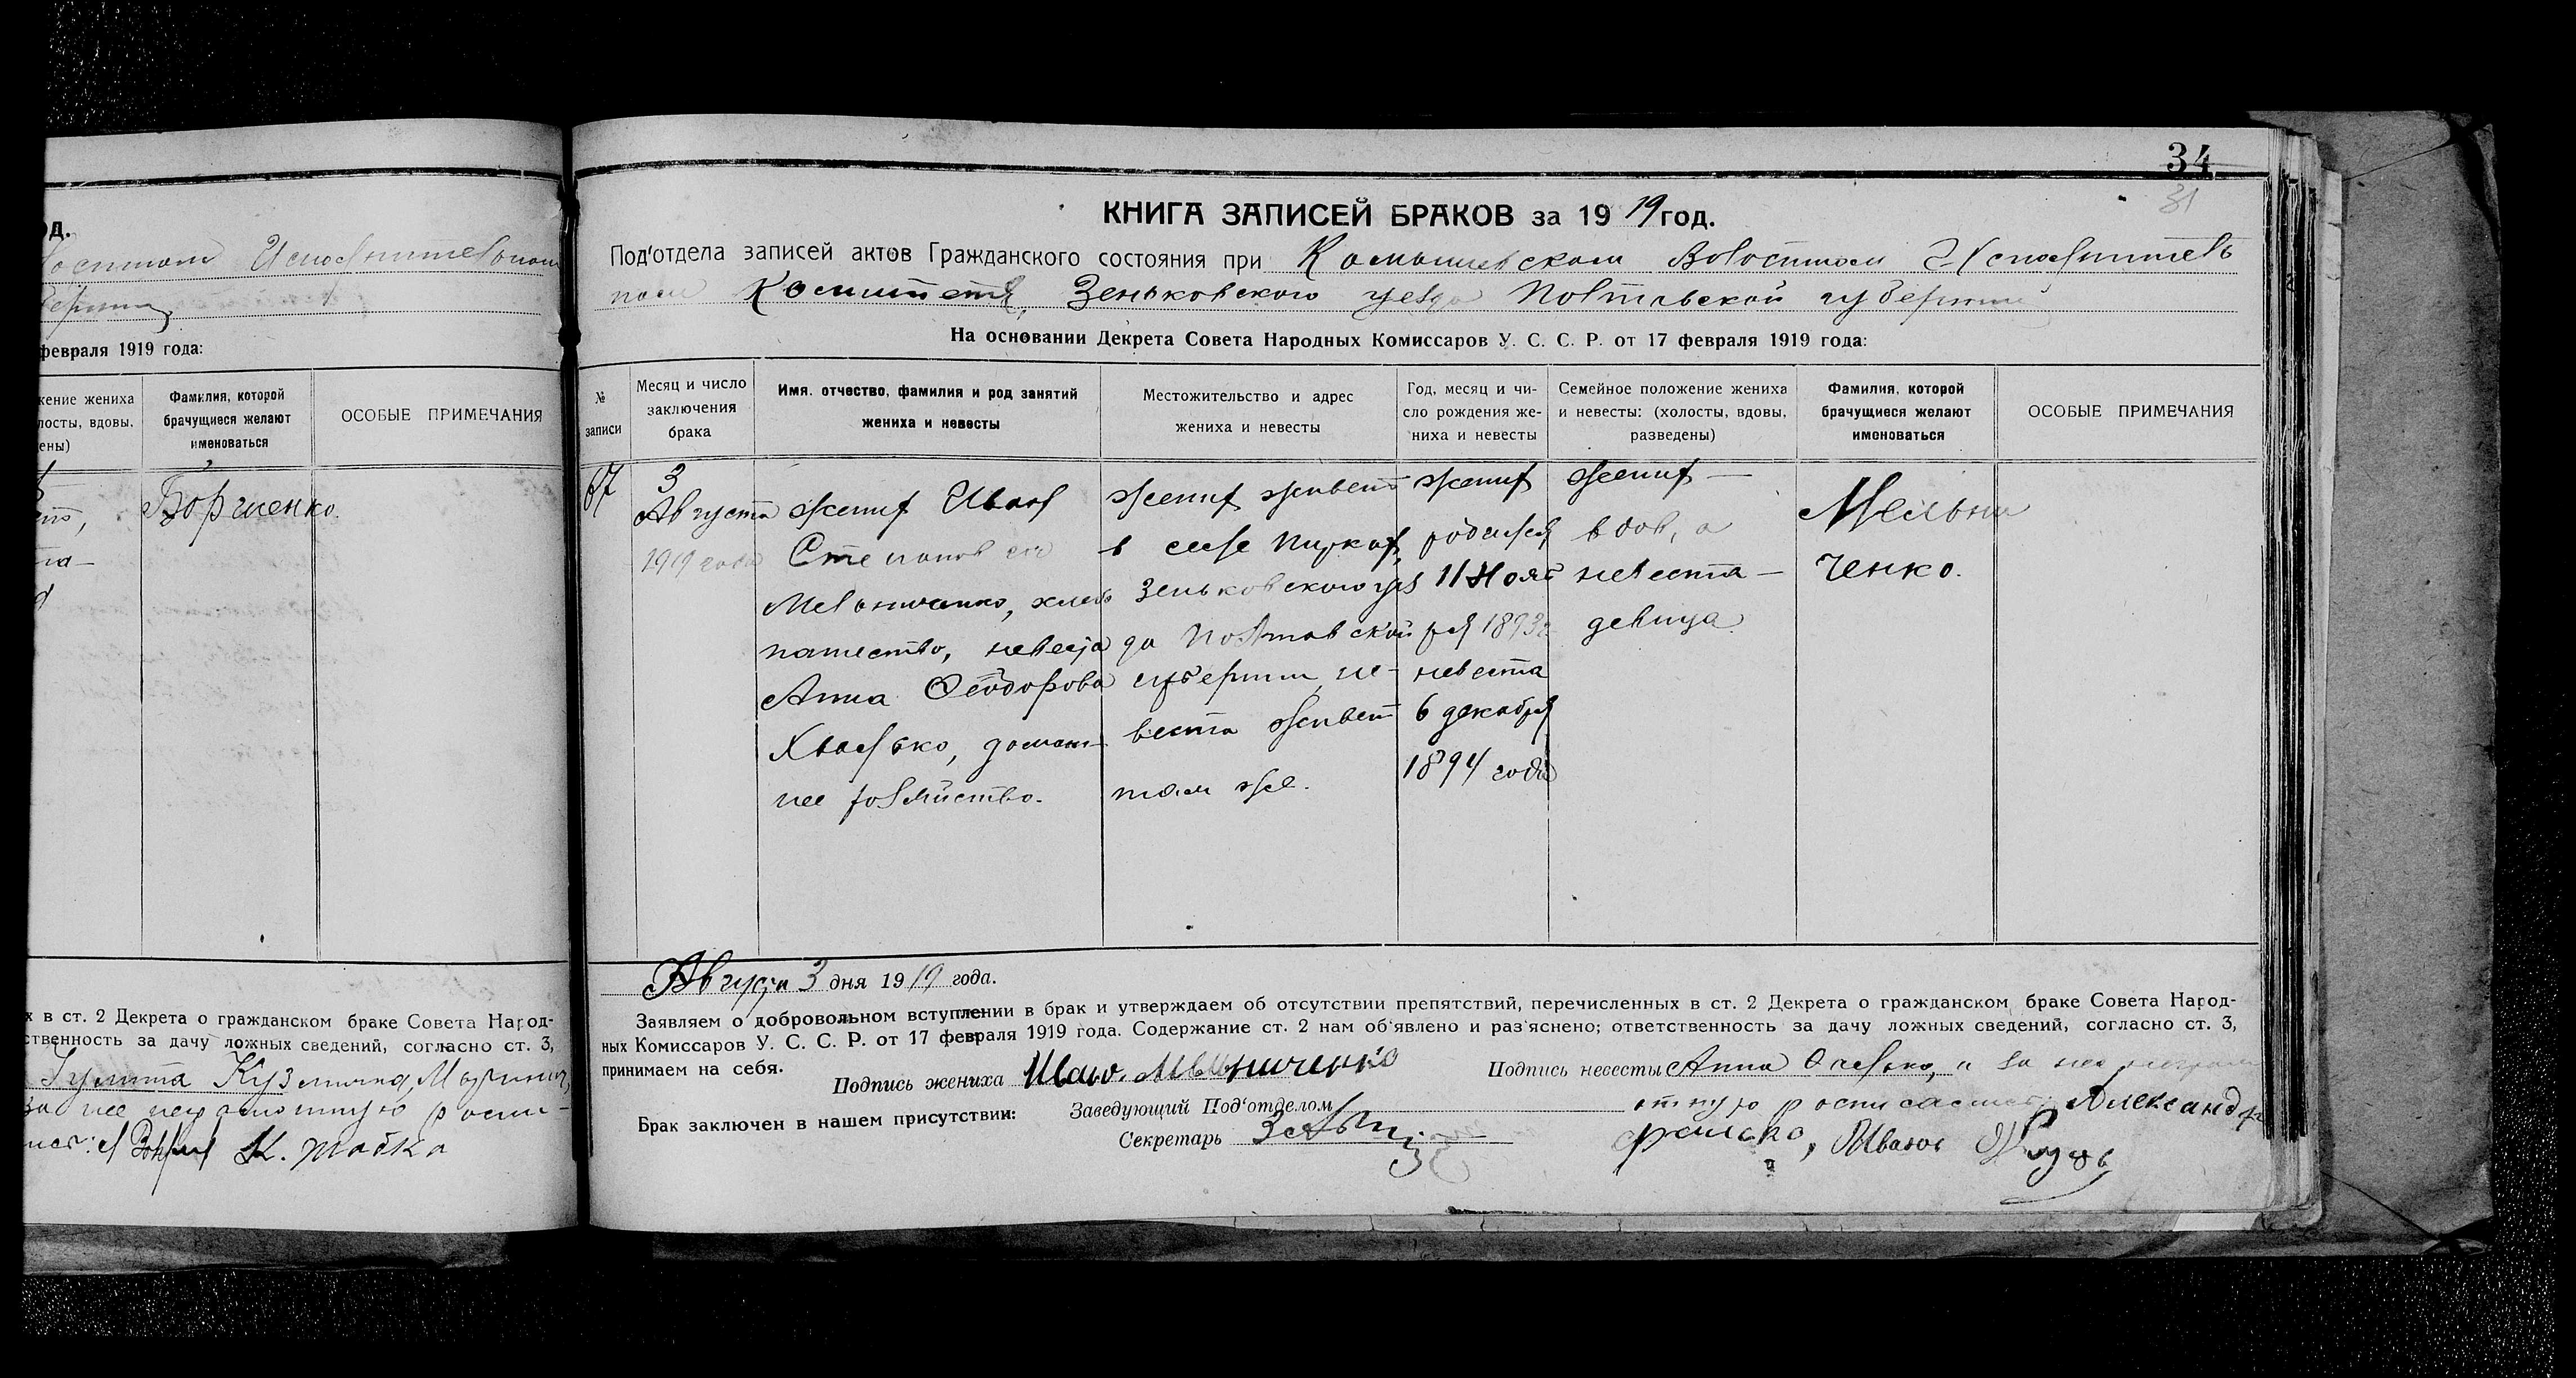 од.
Исполнительном
февраля 1919 года:
жение жениха
лосты, вдовы,
ены)
Фамилия, которой
брачущиеся желают
именоваться
ОСОБЫЕ ПРИМЕЧАНИЯ
х в ст. 2 Декрета о гражданском браке Совета Народ-
ственность за дачу ложных сведений, согласно ст. 3,
34
31
КНИГА ЗАПИСЕЙ БРАКОВ за 1919 год.
Под'отдела записей актов Гражданского состояния при Комышевском Волостном Исполнитель
ном Комитете, Зеньковского уезда Полтавской губернии
На основании Декрета Совета Народных Комиссаров У. С. С. Р. от 17 февраля 1919 года:
№
записи
Месяц и число
заключения
брака
Имя, отчество, фамилия и род занятий
жениха и невесты
Местожительство и адрес
жениха и невесты
Год, месяц и чи-
сло рождения же-
ниха и невесты
Семейное положение жениха
и невесты: (холосты, вдовы,
разведены)
Фамилия, которой
брачущиеся желают
именоваться
ОСОБЫЕ ПРИМЕЧАНИЯ
3
Августа
1919 года
жених Иван
Степанов
Мельниченко, хлебо
пашество, невеста
Анна Феодорова
домаш-
нее хозяйство.
жених живет
в селе Пирках,
Зеньковского уез
да Полтавской
губернии, не-
веста живет
там же.
жених
родился
11 Нояб
ря 1893 г.
невеста
6 декабря
1894 года
жених —
вдов, а
невеста —
девица.
Мельни
ченко.
Августа 3 дня 1919 года.
Заявляем о добровольном вступлении в брак и утверждаем об отсутствии препятствий, перечисленных в ст. 2 Декрета о гражданском браке Совета Народ-
ных Комиссаров У. С. С. Р. от 17 февраля 1919 года. Содержание ст. 2 нам об'явлено и раз'яснено; ответственность за дачу ложных сведений, согласно ст. 3,
принимаем на себя.
Подпись жениха Иван
Подпись невесты Анна
Александр
Брак заключен в нашем присутствии:
Заведующий Под'отделом
Секретарь